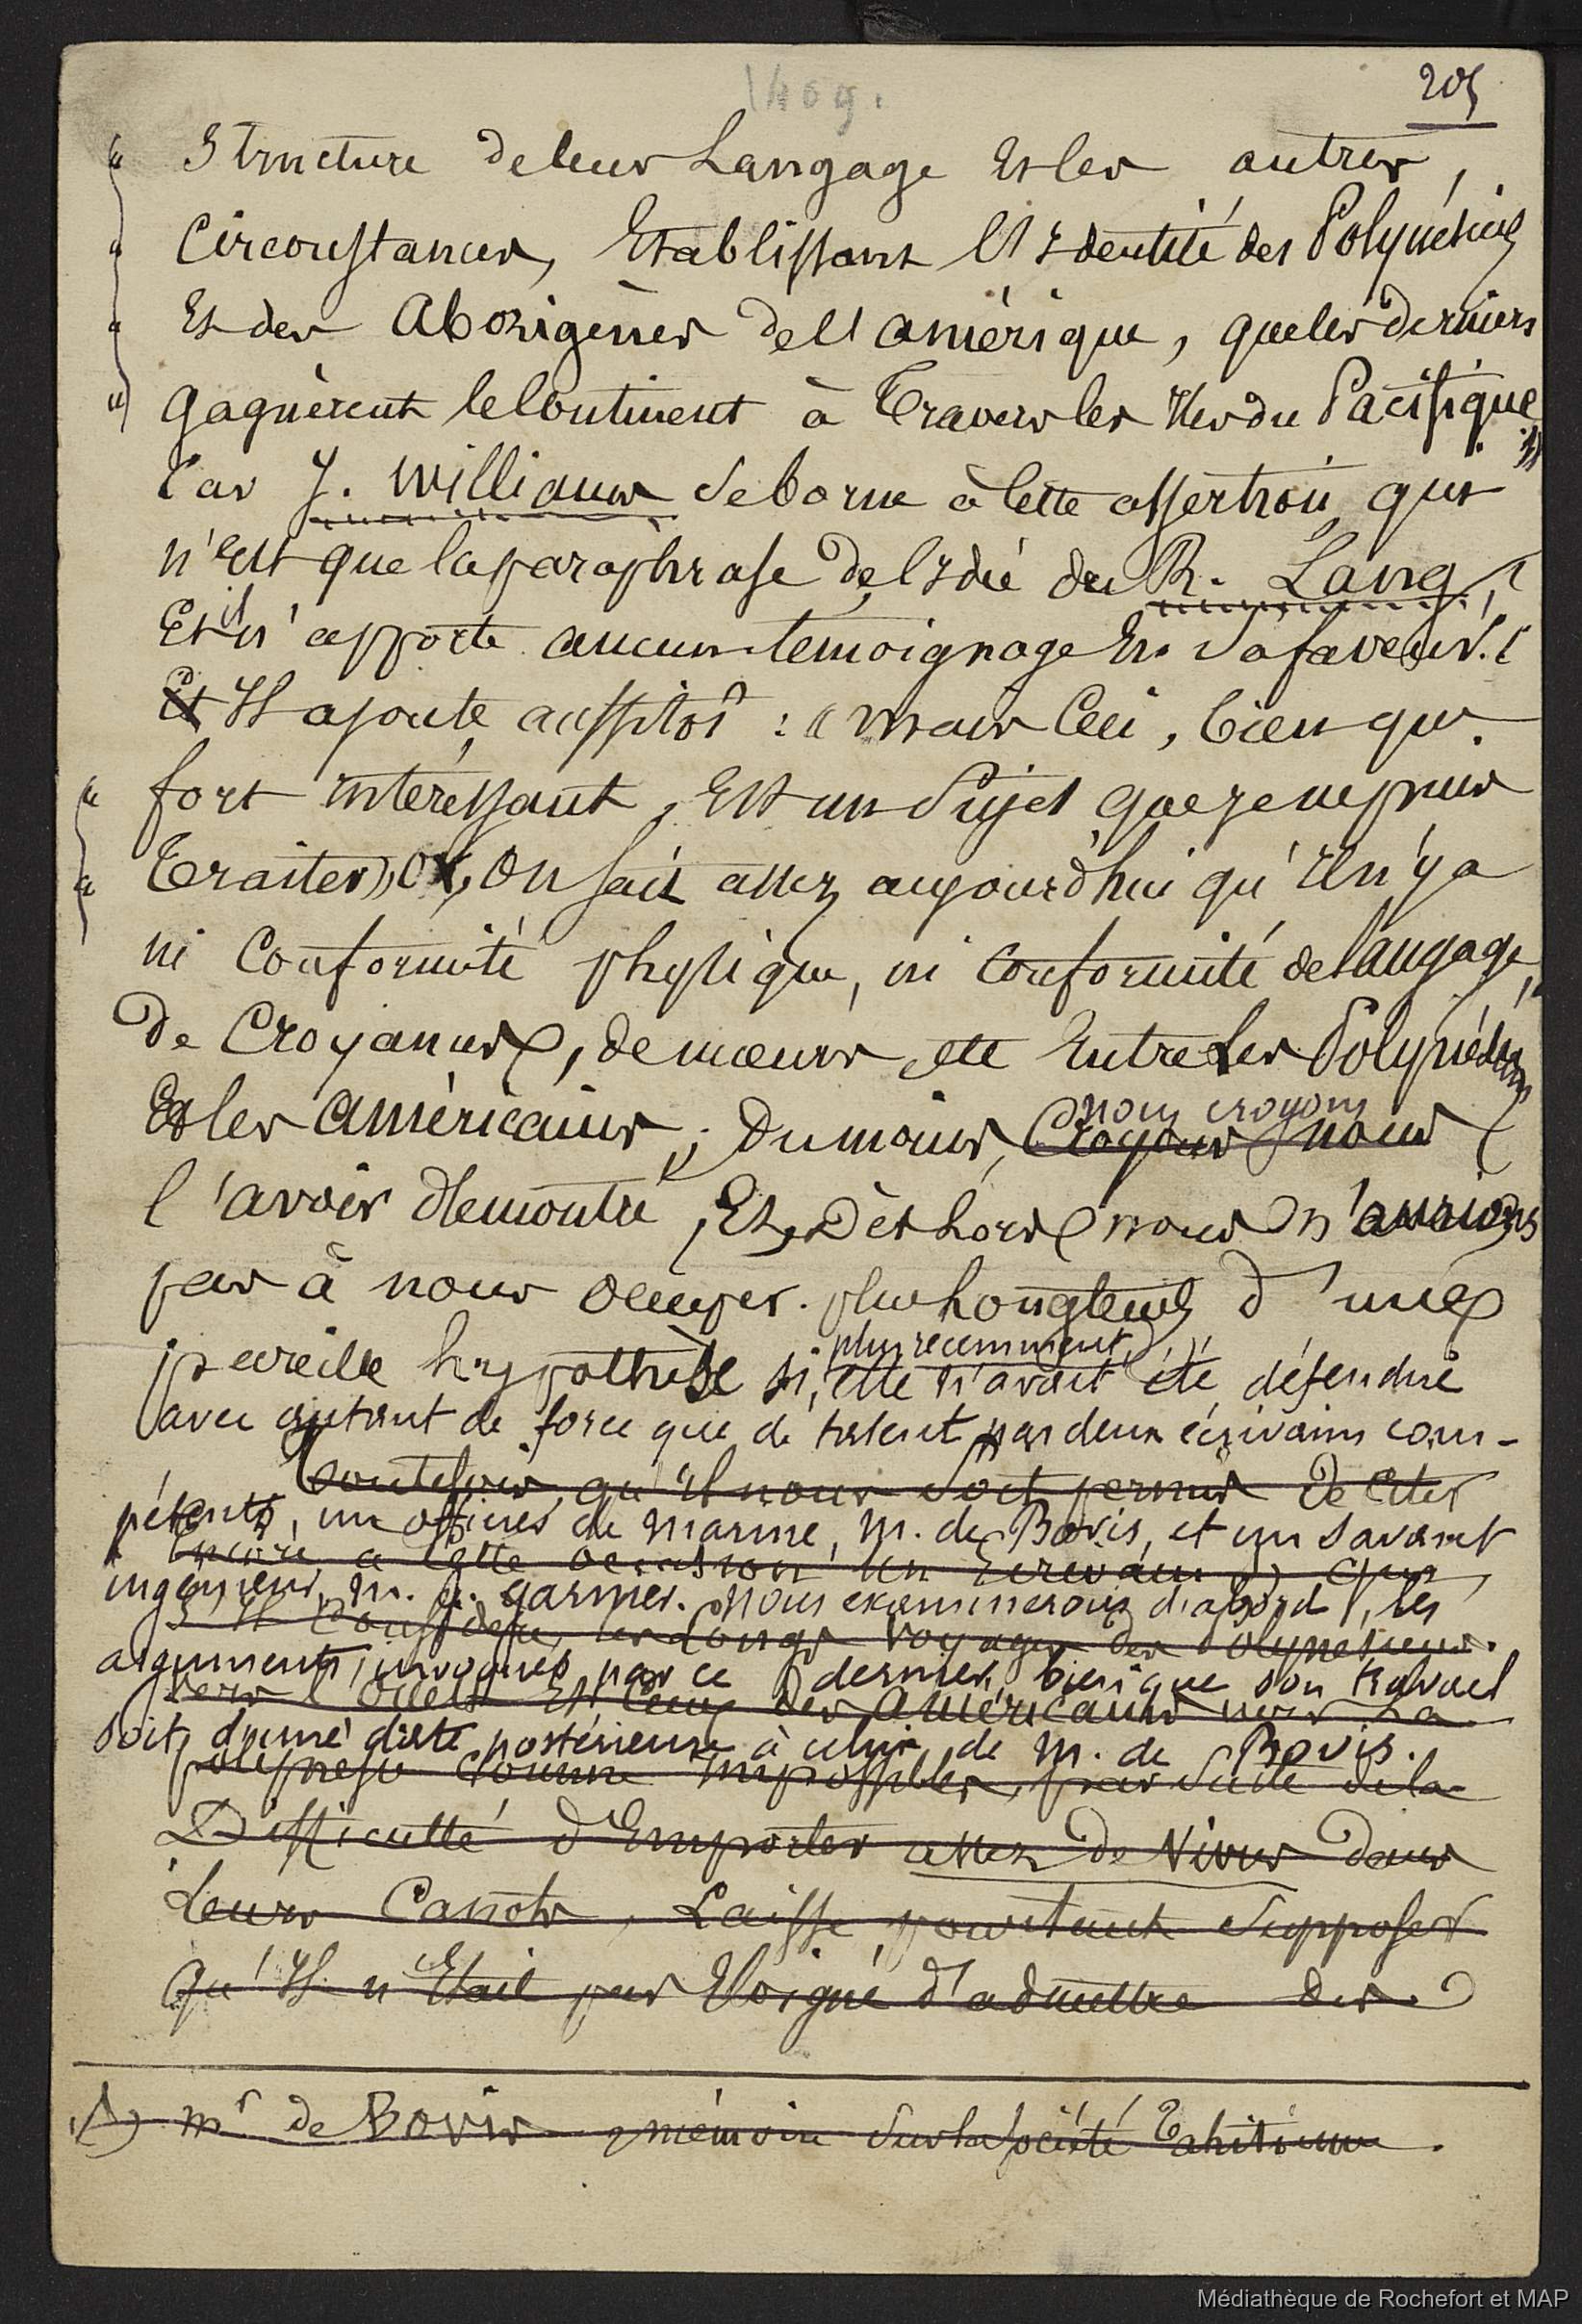 1409.
205
" Structure de leur Langage Et les autres
" Circonstances, Etablissant l'Identité des Polynésiens
" Et des Aborigènes de l'amérique, que les derniers
" gagnèrent le Continent à Travers les Iles du Pacifique."
Car J. Williams se borne à Cette assertion qui
n'Est que la paraphrase de l'Idée du R. Lang,
Et il n'apporte aucun témoignage En sa faveur.
Et Il ajoute aussitôt : « mais Ceci, bien que
" fort intéressant, Est un Sujet que je ne puis
" Traiter », Or, On sait assez aujourd'hui qu'Il n'y a
ni Conformité physique, ni Conformité de langage,
de Croyances, de mœurs, etc Entre Les Polynésiens
Et les Américains ; Du moins, Croyons nous
nous croyons
l'avoir démontré, Et, Dès Lors nous n'aurions
pas à nous occuper plus Longtemps d'une
plus récemment
pareille hypothèse si, elle n'avait été défendue
avec autant de force que de talent par deux écrivains com-
toutefois, qu'Il nous soit permis de Citer
pétents, un officier de marine, M. de Bovis, et un savant
Encore à Cette occasion un Ecrivain qui,
ingénieur, M. J. garnier. Nous examinerons d'abord les
S'Il Considère les Longs voyages des Polynésiens
arguments invoqués par ce dernier, bien que son travail
vers l'Ouest Et Ceux des Américains vers La
soit d'une date postérieure à celui de M. de Bovis.
polynésie Comme impossibles, par Suite de la
Difficulté d'Emporter assez de Vivres dans
leurs Canots, Laisse pourtant Supposer
qu'Il n'Etait pas Eloigné d'admettre des
(1) Mr de Bovis mémoire Sur la Société Tahitienne.
Médiathèque de Rochefort et MAP